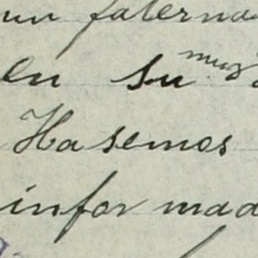 un faterna
en su muy
Hasemos
infor mad